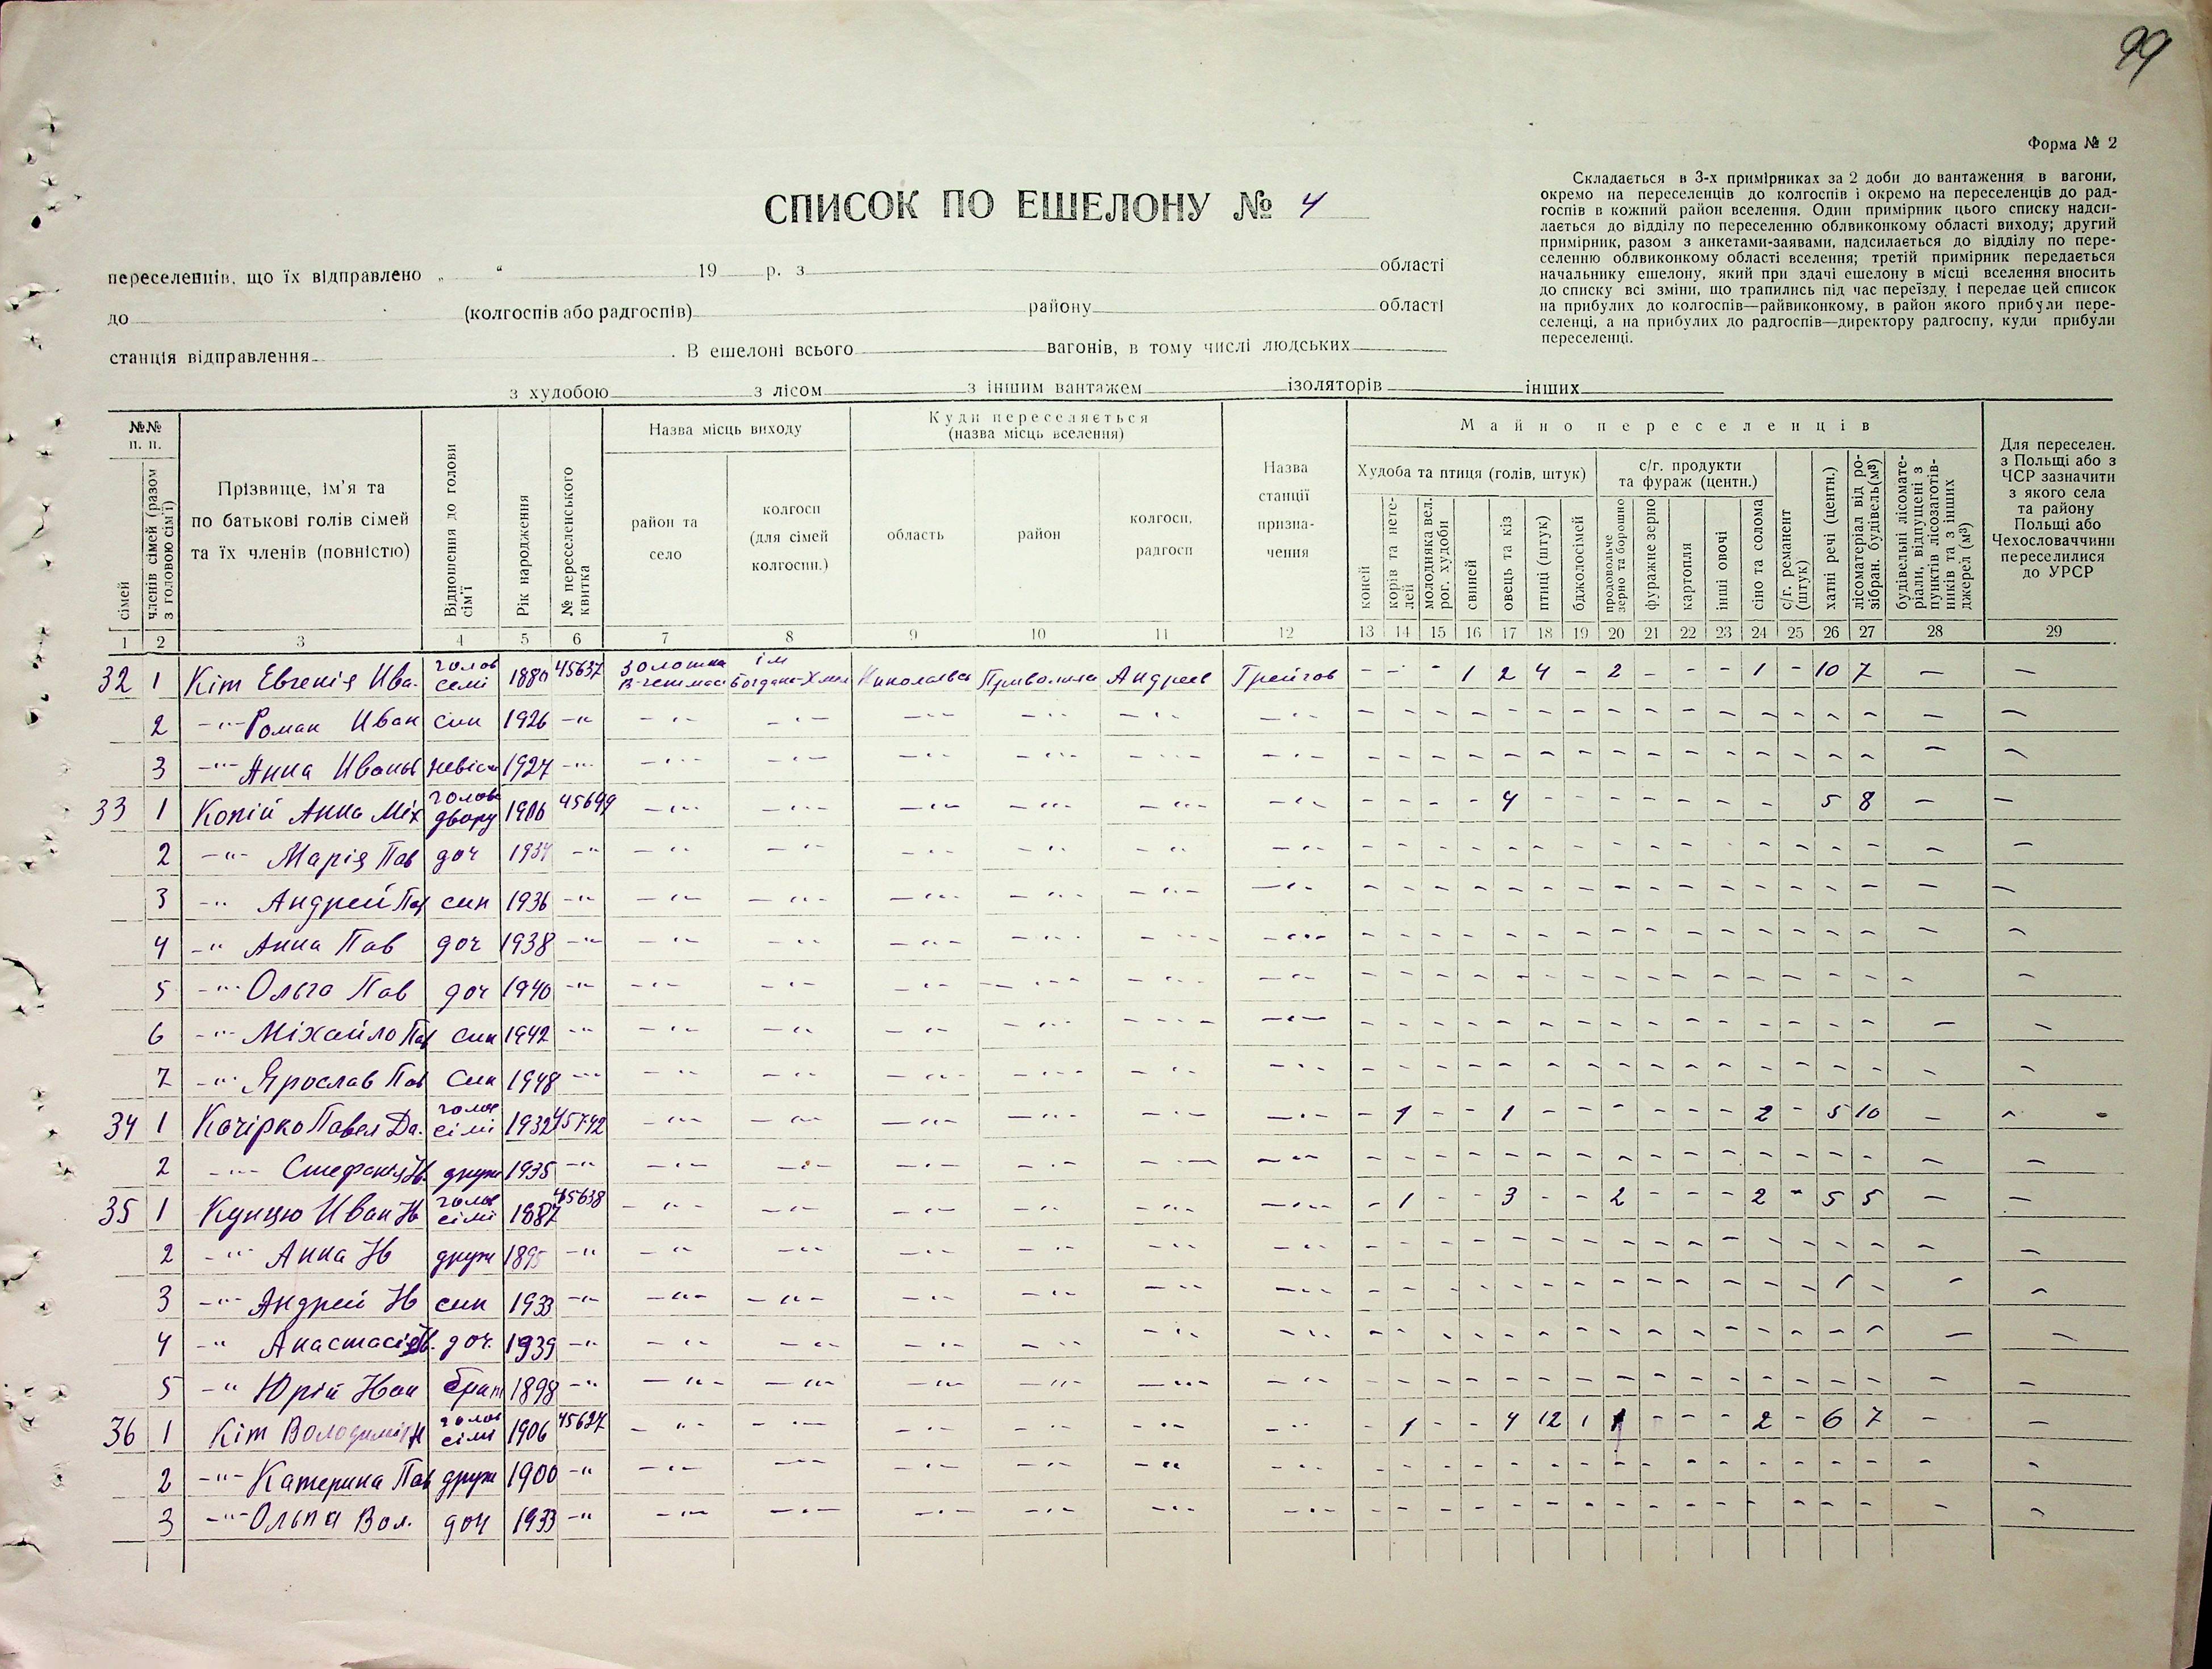 99
Форма № 2
СПИСОК ПО ЕШЕЛОНУ № 4
Складається в 3-х примірниках за 2 доби до вантаження в вагони,
окремо на переселенців до колгоспів і окремо на переселенців до рад-
госпів в кожний район вселення. Один примірник цього списку надси-
лається до відділу по переселенню облвиконкому області виходу; другий
примірник, разом з анкетами-заявами, надсилається до відділу по пере-
селенню облвиконкому області вселення; третій примірник передається
начальнику ешелону, який при здачі ешелону в місці вселення вносить
до списку всі зміни, що трапились під час переїзду і передає цей список
на прибулих до колгоспів—райвиконкому, в район якого прибули пере-
селенці, а на прибулих до радгоспів—директору радгоспу, куди прибули
переселенці.
переселенців, що їх відправлено „ “ 19 р. з області
до (колгоспів або радгоспів) району області
станція відправлення . В ешелоні всього вагонів, в тому числі людських
з худобою з лісом з іншим вантажем ізоляторів інших
№№ п. п.
сімей
членів сімей (разом з головою сім'ї)
Прізвище, ім'я та по батькові голів сімей та їх членів (повністю)
Відношення до голови сім'ї
Рік народження
№ переселенського квитка
Назва місць виходу
район та село
колгосп (для сімей колгоспн.)
Куди переселяється (назва місць вселення)
область
район
колгосп, радгосп
Назва станції призна-чення
Майно переселенців
Худоба та птиця (голів, штук)
коней
корів та нете-лей
молодняка вел. рог. худоби
свиней
овець та кіз
птиці (штук)
бджолосімей
с/г. продукти та фураж (центн.)
продовольче зерно та борошно
фуражне зерно
картопля
інші овочі
сіно та солома
с/г. реманент (штук)
хатні речі (центн.)
лісоматеріал від ро-зібран. будівель(м³)
будівельні лісомате-ріали, відпущені з пунктів лісозаготів-ників та з інших джерел (м³)
Для переселен. з Польщі або з ЧСР зазначити з якого села та району Польщі або Чехословаччини переселилися до УРСР
1 2 3 4 5 6 7 8 9 10 11 12 13 14 15 16 17 18 19 20 21 22 23 24 25 26 27 28 29
32 1 Кіт Евгенія Ива. голов семі 1880 45637 ім Богдана Хмел Андреев Грейгов - - - 1 2 4 - 2 - - - 1 - 10 7 - -
2 -"- Роман Иван син 1926 -"-
3 -"- Анна Иваньв невіс 1927 -"-
33 1 Копій Анна Міх голова двору 1906 45699 - - - - 4 - - - - - - - 5 8 - -
2 -"- Марія Пав доч 1934 -"-
3 -"- Андрей Пав син 1936 -"-
4 -"- Анна Пав доч 1938 -"-
5 -"- Ольга Пав доч 1940 -"-
6 -"- Міхайло Пав син 1942 -"-
7 -"- Ярослав Пав син 1948 -"-
34 1 Качірко Павел Да. голов сімі 1932 45742 - 1 - - 1 - - - - - - 2 - 5 10 - -
2 -"- Стефанія друж 1935 -"-
35 1 Иван голов сімі 1887 45638 - 1 - - 3 - - 2 - - - 2 - 5 5 - -
2 -"- Анна друж 1895 -"-
3 -"- Андрей син 1933 -"-
4 -"- Анастасія доч. 1939 -"-
5 -"- Юрій брат 1898 -"-
36 1 Кіт Володимір голов сімі 1906 45627 - 1 - - 4 12 1 1 - - - 2 - 6 7 - -
2 -"- Катерина Пав друж 1900 -"-
3 -"- Вол. доч 1933 -"-